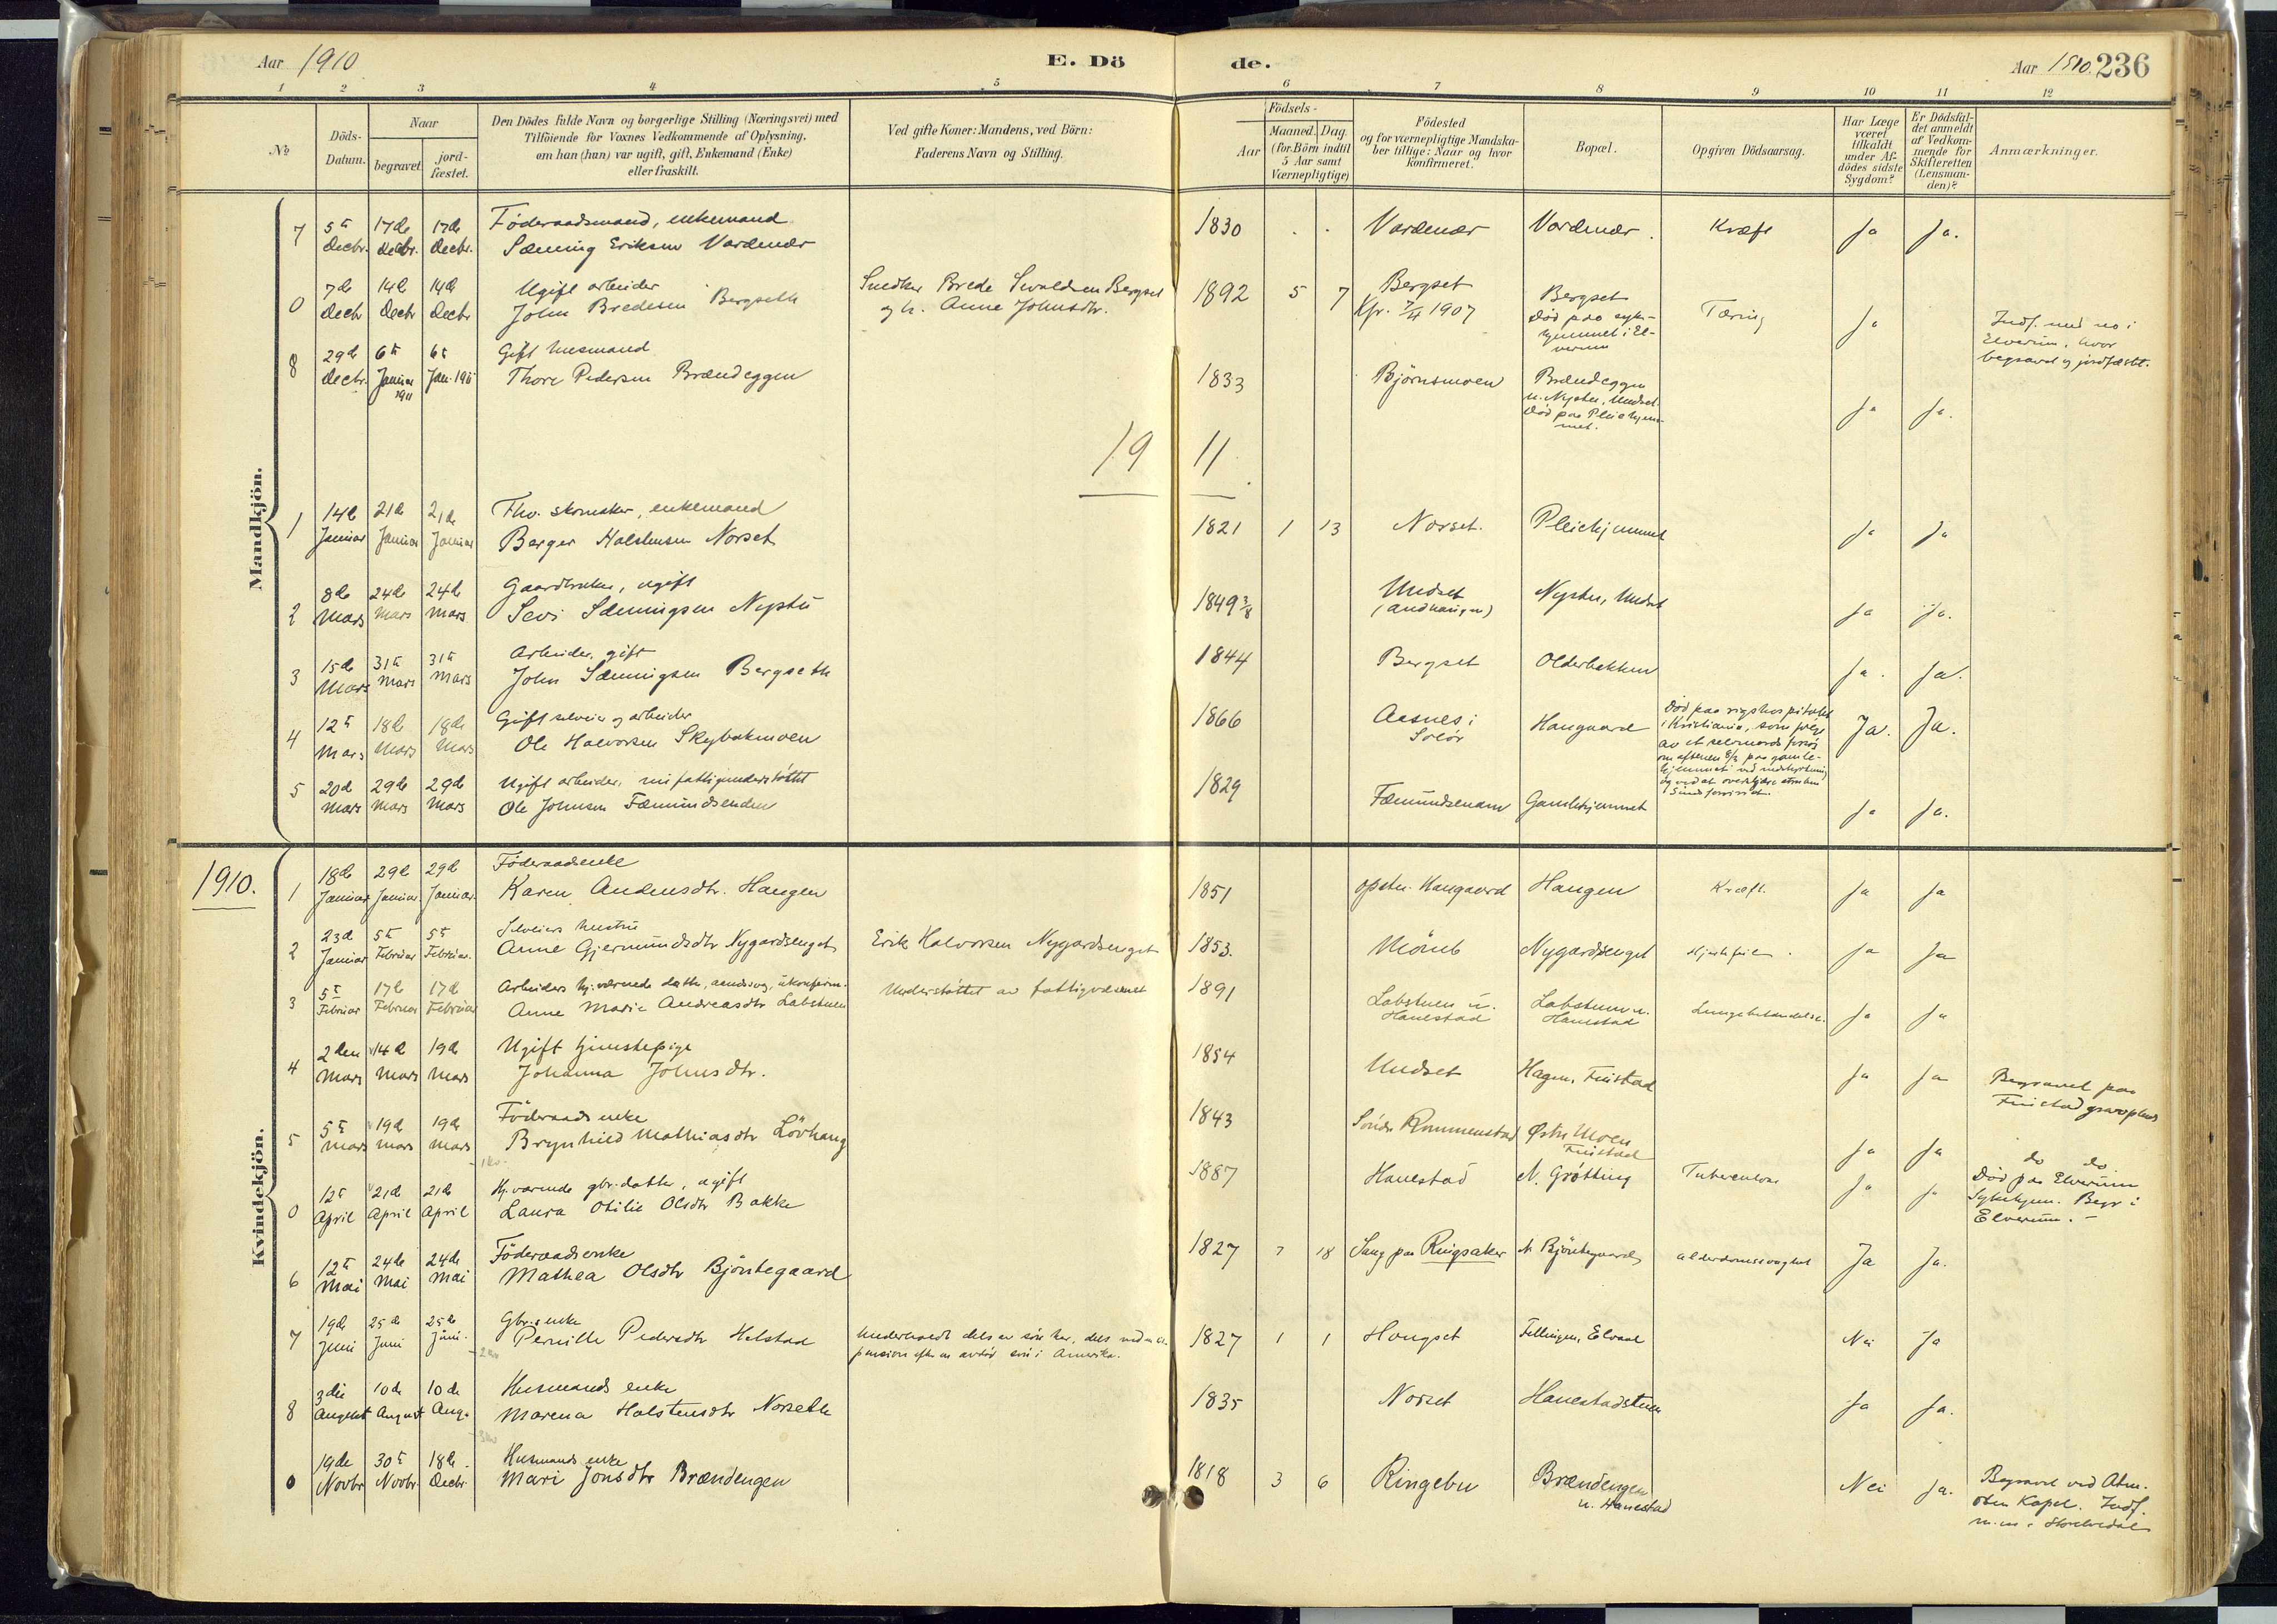 Aar 1910
E. Dö
de.
Aar 1910. 236
1 2 3 4 5 6 7 8 9 10 11 12
No
Döds-
Datum.
Naar
begravet
jord-
fæstet.
Den Dödes fulde Navn og borgerlige Stilling (Næringsvei) med
Tilföiende for Voxnes Vedkommende af Oplysning,
om han (hun) var ugift, gift, Enkemand (Enke)
eller fraskilt.
Ved gifte Koner: Mandens, ved Börn:
Faderens Navn og Stilling.
Födsels-
Aar
Maaned. Dag.
(for Börn indtil
5 Aar samt
Værnepligtige)
Födested
og for værnepligtige Mandska-
ber tillige: Naar og hvor
konfirmeret.
Bopæl.
Opgiven Dödsaarsag.
Har Læge
været
tilkaldt
under Af-
dödes sidste
Sygdom?
Er Dödsfal-
det anmeldt
af Vedkom-
mende for
Skifteretten
(Lensman-
den)?
Anmærkninger.
Mandkjön.
7 5t Decbr. 17de Decbr. 17de Decbr. Föderaadsmand, enkemand
Sæming Eriksen Vardenær 1830 Vardenær Vardenær. Kræft Ja Ja.
0 7de Decbr 14de Decbr 14de Decbr Ugift arbeider
John Bredesen Bergseth
Snedker Brede Sivaldsen Bergset
og h. Anne Johnsdtr.
1892 5 7 Bergset
Kfr. 1907
Bergset
Död paa syke-
hjemmet i El-
verum
Tæring Ja
Indf. med no i
Elverum, hvor
begravet og jordfæstet.
8 29de Decbr. 6te Januar 1911 6te Jan. 1911 Gift husmand
Thore Pedersen Brændeggen
1833 Björnsmoen Brændeggen
u. Nystu, Undset.
Död paa Pleiehjem-
met.
Ja Ja.
19 11.
1 14de Januar 21de Januar 21de Januar Fhv. skomaker, enkemand
Berger Halstensen Norset 1821 1 13 Norset. Pleiehjemmet Ja Ja
2 8de Mars 24de Mars 24de Mars Gaardbruker, ugift
Sevi Sæmingsen Nystu 1849 3/8 Undset
Nystu, Undset Ja Ja.
3 15de Mars 31te Mars 31te Mars Arbeider, gift
John Sæmingsen Bergseth 1844 Bergset Olderbakken Ja. Ja.
4 12te Mars 18de Mars 18de Mars Gift selveier og arbeider
Ole Halvorsen Skybakmoen 1866 Aasnes i
Solör
Haugaard
Död paa rigshospitalet
i Kristiania, som fölge
av et selvmords forsög
Ja. Ja.
5 20de Mars 29de Mars 29de Mars Ugift arbeider, fattigunderstöttet
Ole Johnsen Fæmundsenden 1829 Fæmundsenden Gamlehjemmet Ja Ja.
1910.
Kvindekjön.
1 18de Januar 29de Januar 29de Januar. Föderaadsenke
Karen Andersdtr. Haugen 1851 opstu. Haugaard Haugen Kræft. Ja Ja
2 23de Januar 5te Februar 5te Februar. Selveiers hustru
Anne Gjermundsdtr Nygardsenget Erik Halvorsen Nygardsenget 1853. Mömb Nygardsenget Hjertefeil. Ja Ja
3 5te Februar 17de Februar 17de Februar Arbeiders hj.værende datter, aandssvag, ukonfirm.
Anne Marie Andreasdtr Labstuen Understöttet av fattigvæsenet 1891 Labstuen u.
Hanestad
Labstuen u.
Hanestad
Ja Ja
4 2den Mars 14de Mars 19de Mars Ugift tjenestepige
Johanna Johnsdtr. 1854 Undset Hagen, Finstad Ja Ja
Begravet paa
Finstad gravplads
5 5te Mars 19de Mars 19de Mars Föderaadsenke
Brynhild Mathiasdtr Lövhaug 1843 Söndre Rommenstad Östre Moen
Finstad
Ja Ja do do
0 12te April 21de April 21de April Hj.værende gbr.datter, ugift
Laura Otilie Olsdtr Bakke 1887 Hanestad N. Grötting Tuberculose Ja Ja
Död paa Elverum
Sykehjem. Begr i
Elverum. -
6 12te Mai 24de Mai 24de Mai Föderaadsenke
Mathea Olsdtr Björnegaard 1827 7 18 Saug paa Ringsaker N. Björnegaard alderdomssvaghet Ja Ja.
7 19de Juni 25de Juni 25de Juni. Gbr.enke
Pernille Pedersdtr Helstad
Underholdt dels av sön her, dels ved en
pension efter en avdöd sön i Amerika.
1827 1 1 Hougset Fellingen, Elvaal Nei Ja
8 3die August 10de August 10de Aug. Husmands enke
Marena Halstensdtr Norseth 1835 Norset Hanestadstuen Ja Ja.
0 19de Novbr 30te Novbr. 18de Decbr. Husmands enke
Mari Jonsdtr Brændengen 1818 3 6 Ringebu Brændengen
u. Hanestad
Nei Ja.
Begravet ved Atn-
oten Kapel. Indf.